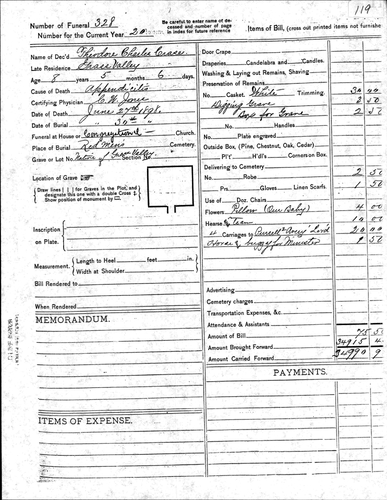 119
Number of Funeral 328
Number for the Current Year 20
Be careful to enter name of deceased and number of page in index for future reference
Items of Bill, (cross out printed items not furnished
Name of Dec'd Theodore Charles Crase
Late Residence Grass Valley
Age, 8 years 5 months 6 days.
Cause of Death Appendicitis
Certifying Physician C. W. Jones
Date of Death June 27th 1898.
Date of Burial 30th "
Funeral at House or Congregational Church.
Place of Burial Red Men's Cemetery.
Grave or Lot No. Native of Grass Valley. Section No.
Location of Grave
Draw lines for Graves in the Plot, and designate this one with a double Cross. Show position of monument by
Inscription on Plate.
Measurement. Length to Heel feet in.
Width at Shoulder
Bill Rendered to
When Rendered
MEMORANDUM.
ITEMS OF EXPENSE.
Door Crape
Draperies Candelabra and Candles.
Washing & Laying out Remains, Shaving
Preservation of Remains
No. Casket, White Trimming. 30 00
Digging Grave 2 50
Box for Grave 2 50
No. Handles
Plate engraved
Outside Box, (Pine, Chestnut, Oak, Cedar)
Pl't H'd'l's Cameron Box.
Delivering to Cemetery
No. Robe 2 50
Prs. Gloves Linen Scarfs. 1 50
Use of Doz. Chairs
Flowers Pillow (Our Baby) 4 00
Hearse & Team 10 00
4 Carriages to 20 00
Horse & buggy for Minister 2 50
Advertising
Cemetery charges
Transportation Expenses, &c
Attendance & Assistants
Amount of Bill 75 50
Amount Brought Forward 34915 4
Amount Carried Forward 34990 9
PAYMENTS.